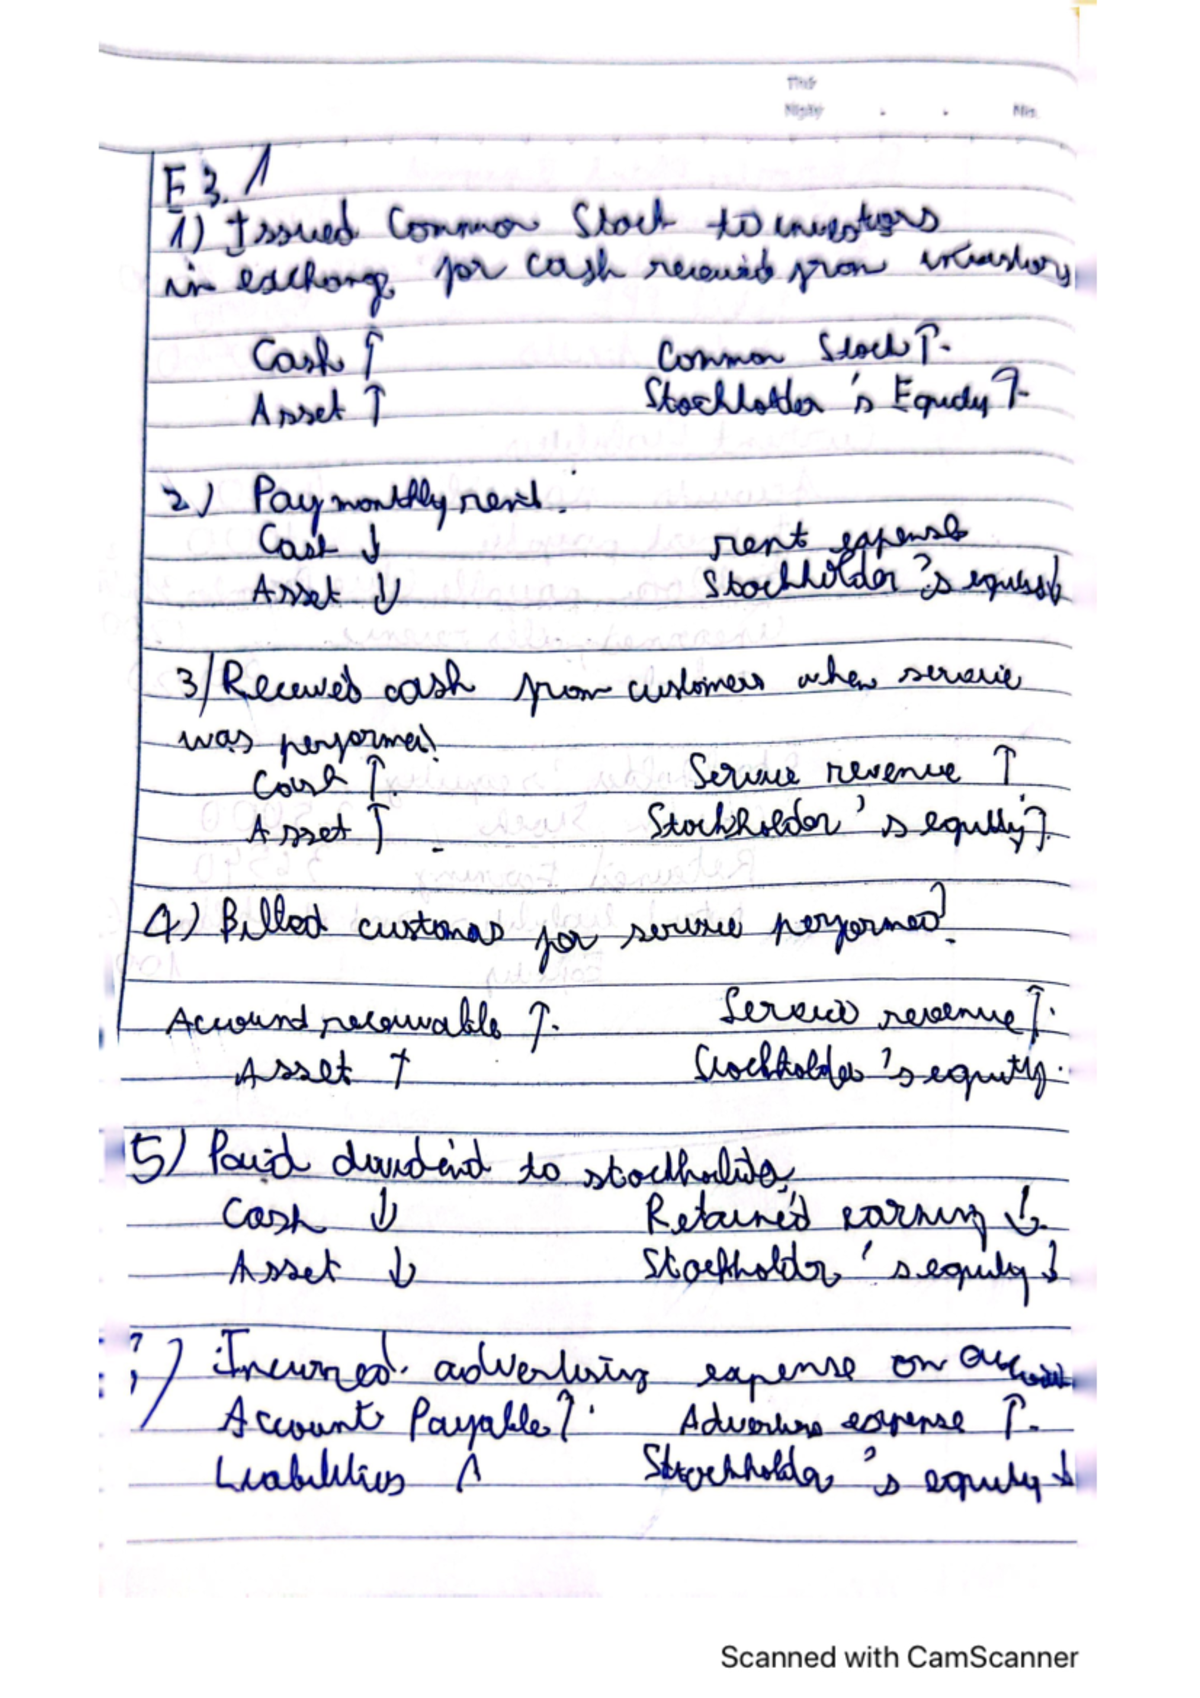 Thứ
Ngày . . No.
E 3.1
1) Issued Common Stock to investors
in exchange for cash received from investors
Cash ↑ Common Stock ↑.
Asset ↑ Stockholder's Equity ↑
2) Pay monthly rent.
Cash ↓ rent expense
Asset ↓ Stockholder's
3/ Received cash from customers when service
was performed
Cash ↑ Service revenue ↑
Asset ↑ Stockholder's equity ↑
4) Billed customers for service performed
Account receivable ↑. Service revenue ↑.
Asset ↑ Stockholder's equity.
5) Paid dividend to
Cash ↓ Retained earning ↓
Asset ↓ Stockholder's equity ↓
Incurred advertising expense on
Account Payable ↑. expense ↑.
Liabilities ↑ Stockholder's equity ↓
Scanned with CamScanner